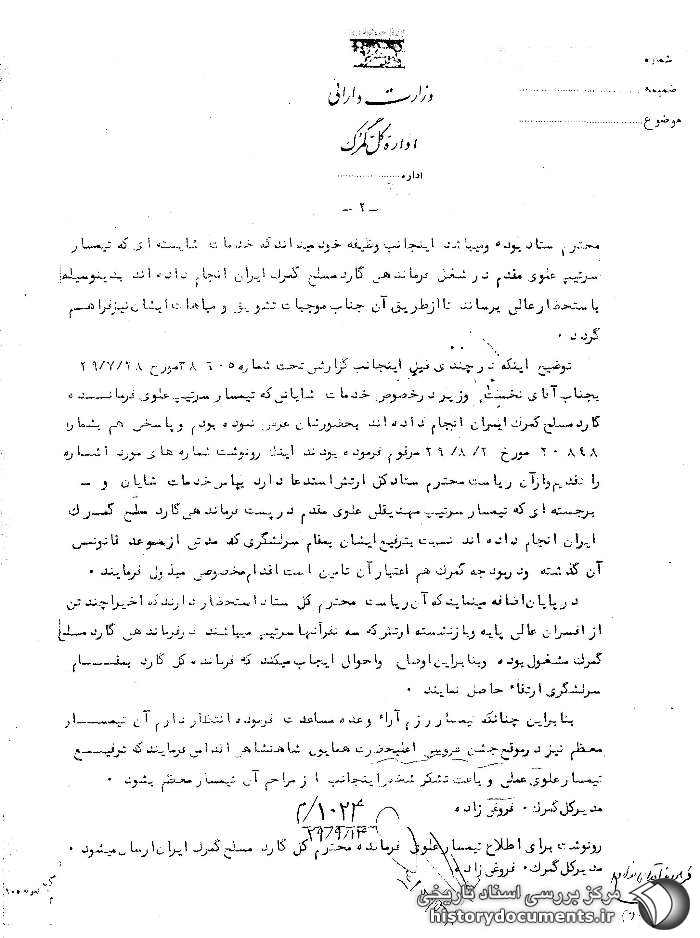 شماره
ضمیمه
موضوع
وزارت دارائی
اداره کل گمرک
اداره
- ۲ -
محترم ستاد بوده ومیباشد اینجانب وظیفه خود میداند که خدمات شایسته ای که تیمسار
سرتیپ علوی مقدم در شغل فرماندهی گارد مسلح گمرک ایران انجام داده اند بدینوسیله
باستحضار عالی برساند تا از طریق آن جناب موجبات تشویق و مباهات ایشان نیز فراهم
گردد ۰
توضیح اینکه در چندی قبل اینجانب گزارشی تحت شماره ۳۸۶۰۵ مورخ ۲۹/۷/۲۸
بجناب آقای نخست وزیر درخصوص خدمات شایانی که تیمسار سرتیپ علوی فرمانده
گارد مسلح گمرک ایران انجام داده اند بحضورشان عرض نموده بودم و پاسخی هم بشماره
۲۰۸۴۸ مورخ ۲۹/۸/۲ مرقوم فرموده بودند اینک رونوشت شماره های مورد اشاره
را تقدیم و از آن ریاست محترم ستاد کل ارتش استدعا دارد بپاس خدمات شایان و -
برجسته ای که تیمسار سرتیپ مهدیقلی علوی مقدم در پست فرماندهی گارد مسلح گمرک
ایران انجام داده اند نسبت بترفیع ایشان بمقام سرلشگری که مدتی از موعد قانونی
آن گذشته ودر بودجه گمرک هم اعتبار آن تامین است اقدام مخصوصی مبذول فرمایند ۰
در پایان اضافه مینماید که آن ریاست محترم کل ستاد استحضار دارند که اخیرا چند تن
از افسران عالی پایه وبازنشسته ارتش که سه نفر آنها سرتیپ میباشند در فرماندهی گارد مسلح
گمرک مشغول بوده وبنابراین اوضاع واحوال ایجاب میکند که فرمانده کل گارد بمقام
سرلشگری ارتقاء حاصل نمایند ۰
بنابراین چنانکه تیمسار رزم آراء وعده مساعدت فرموده انتظار دارم آن تیمسار
معظم نیز در موقع جشن عروسی اعلیحضرت همایون شاهنشاهی اقدامی فرمایند که ترفیع
تیمسار علوی عملی و باعث تشکر شخص اینجانب از مراحم آن تیمسار معظم بشود ۰
مدیرکل گمرک ۰ فروغی زاده
۱۰۲۴/م
۲۹/۹/۱۳
رونوشت برای اطلاع تیمسار علوی فرمانده محترم کل گارد مسلح گمرک ایران ارسال میشود ۰
مدیرکل گمرک ۰ فروغی زاده
مرکز بررسی اسناد تاریخی
historydocuments.ir